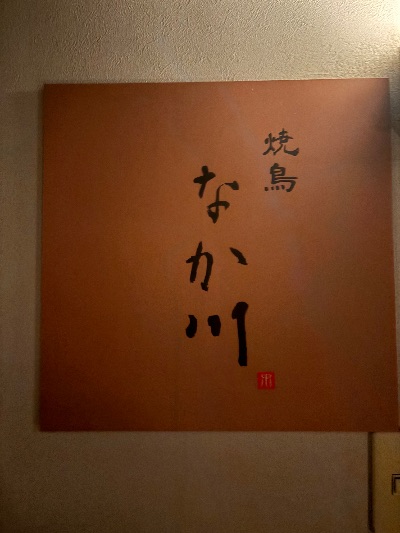 焼鳥
なか川